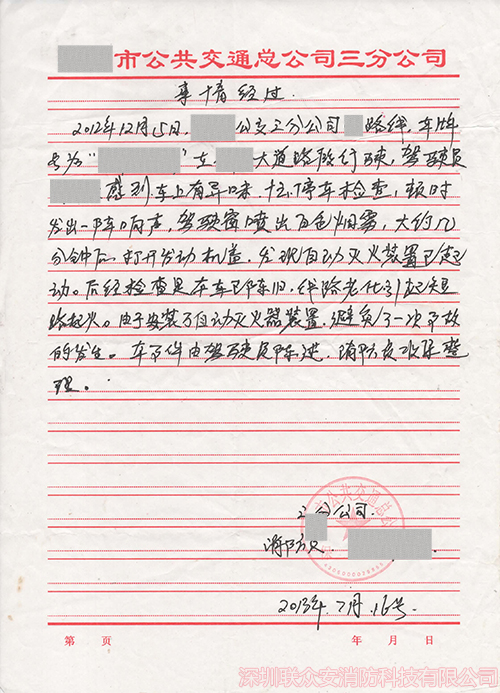 市公共交通总公司三分公司
事情经过
2012年12月15日,公交三分公司路线,车牌
号为“”在大道路段行驶,驾驶员
感到车上有异味,于停车检查,顿时
发出一阵响声,驾驶窗喷出白色烟雾,大约几
分钟后,打开发动机盖,发现自动灭火装置已起
动。后经检查是本车已陈旧,线路老化引起短
路起火。由于安装了自动灭火器装置,避免了一次事故
的发生。车事件由驾驶员陈述,消防员收集整
理。
公共交通总
分公司
消防员
2013年7月16号
第 页 年 月 日
深圳联众安消防科技有限公司